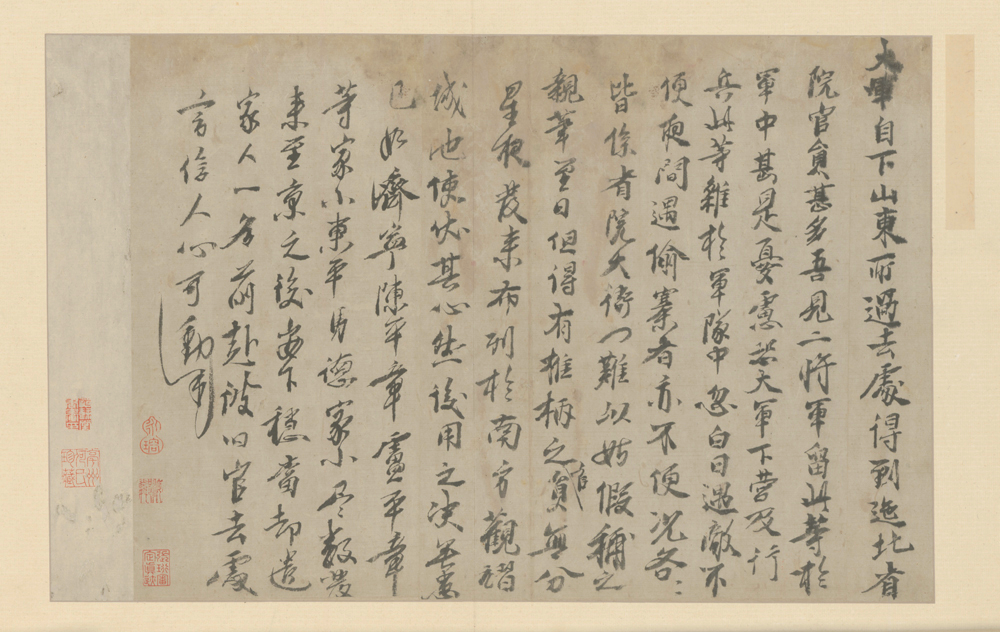 大軍自下山東所過去處得到迤北省
院官員甚多吾見二將軍留此等於
軍中甚是憂慮恐大軍下營及行
兵此等雜於軍隊中忽白日遇敵不
便夜間遇偷寨者亦不便況各〻
皆係省院大衙門難以姑假補之
親筆至日但得有權柄之官員無分
星夜發來布列於南方觀
城池使伏其心然後用之決無患
已如濟寧陳平章盧平章
等家小東平馬德家小尽數發
来至京之後安下穩當却遣
家人一名前赴彼旧官去處
言信人心可動